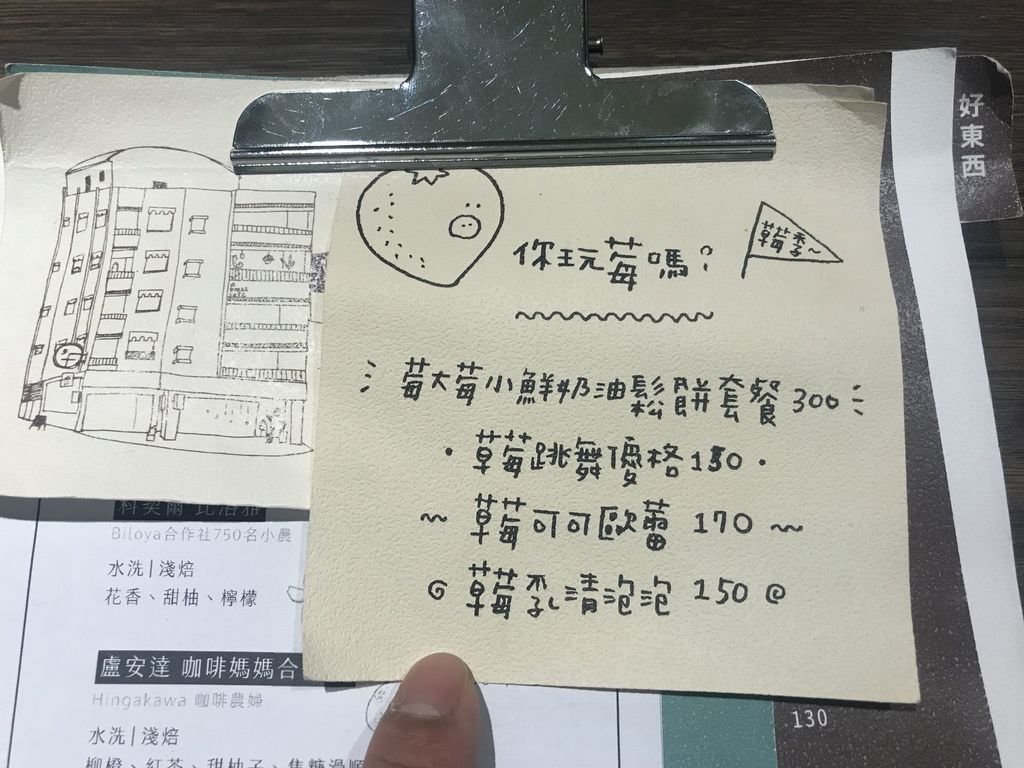 好東西
你玩莓嗎?
莓季~
莓大莓小鮮奶油鬆餅套餐 300
草莓跳舞優格 130
草莓可可歐蕾 170
草莓乳清泡泡 150
Biloya合作社750名小農
水洗|淺焙
花香、甜柚、檸檬
盧安達 咖啡媽媽合
Hingakawa 咖啡農婦
水洗|淺焙
柳橙、紅茶、甜柚子、焦糖滑順
130